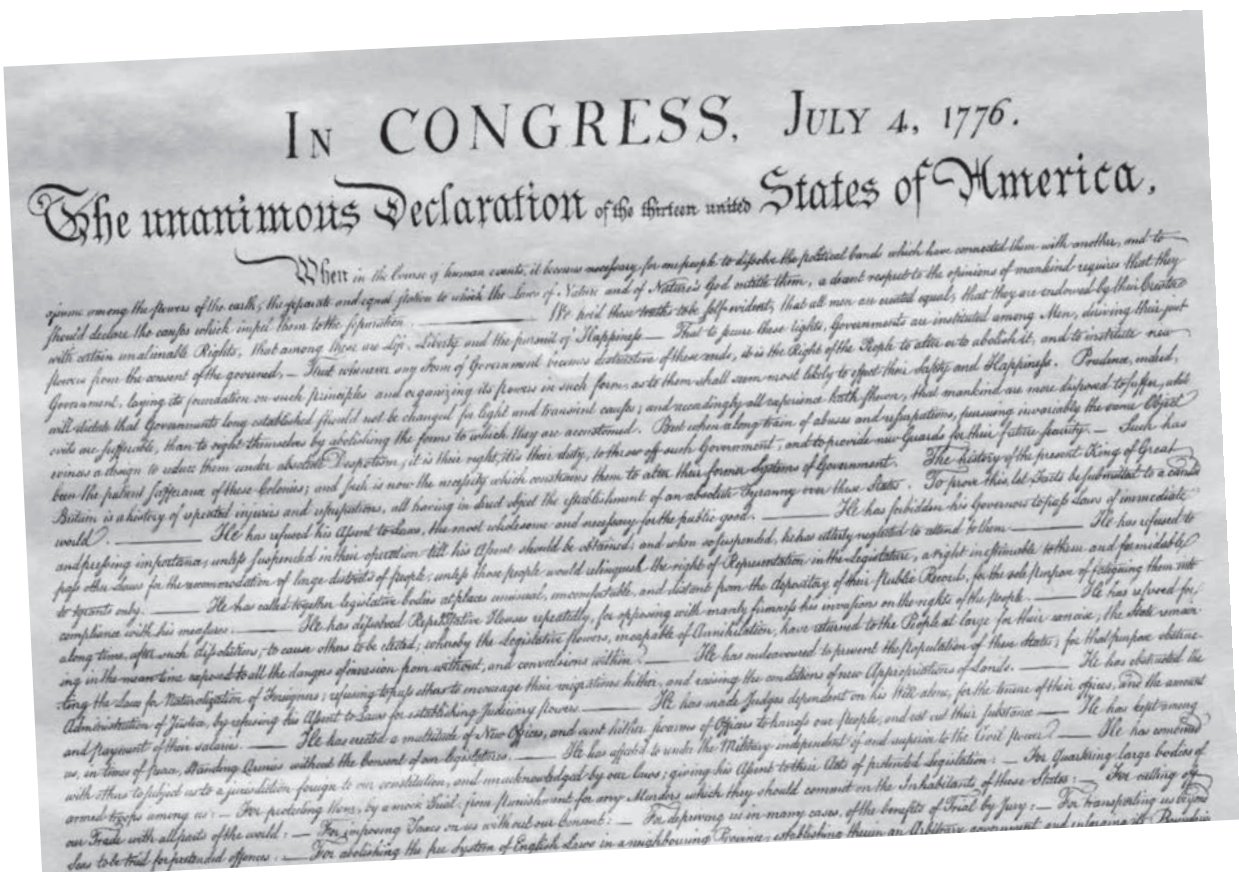 IN CONGRESS, JULY 4, 1776.
The unanimous Declaration of the thirteen united States of America,
When in the Course of human events, it becomes necessary for one people to dissolve the political bands which have connected them with another, and to
assume among the powers of the earth, the separate and equal station to which the Laws of Nature and of Nature's God entitle them, a decent respect to the opinions of mankind requires that they
should declare the causes which impel them to the separation. —— We hold these truths to be self-evident, that all men are created equal, that they are endowed by their Creator
with certain unalienable Rights, that among these are Life, Liberty and the pursuit of Happiness.— That to secure these rights, Governments are instituted among Men, deriving their just
powers from the consent of the governed, — That whenever any Form of Government becomes destructive of these ends, it is the Right of the People to alter or to abolish it, and to institute new
Government, laying its foundation on such principles and organizing its powers in such form, as to them shall seem most likely to effect their Safety and Happiness. Prudence, indeed,
will dictate that Governments long established should not be changed for light and transient causes; and accordingly all experience hath shewn, that mankind are more disposed to suffer, while
evils are sufferable, than to right themselves by abolishing the forms to which they are accustomed. But when a long train of abuses and usurpations, pursuing invariably the same Object
evinces a design to reduce them under absolute Despotism, it is their right, it is their duty, to throw off such Government, and to provide new Guards for their future security. — Such has
been the patient sufferance of these Colonies; and such is now the necessity which constrains them to alter their former Systems of Government. The history of the present King of Great
Britain is a history of repeated injuries and usurpations, all having in direct object the establishment of an absolute Tyranny over these States. To prove this, let Facts be submitted to a candid
world. —— He has refused his Assent to Laws, the most wholesome and necessary for the public good. —— He has forbidden his Governors to pass Laws of immediate
and pressing importance, unless suspended in their operation till his Assent should be obtained; and when so suspended, he has utterly neglected to attend to them. —— He has refused to
pass other Laws for the accommodation of large districts of people, unless those people would relinquish the right of Representation in the Legislature, a right inestimable to them and formidable
to tyrants only. —— He has called together legislative bodies at places unusual, uncomfortable, and distant from the depository of their Public Records, for the sole purpose of fatiguing them into
compliance with his measures. —— He has dissolved Representative Houses repeatedly, for opposing with manly firmness his invasions on the rights of the people. —— He has refused for
a long time, after such dissolutions, to cause others to be elected; whereby the Legislative powers, incapable of Annihilation, have returned to the People at large for their exercise; the State remain-
ing in the mean time exposed to all the dangers of invasion from without, and convulsions within. —— He has endeavoured to prevent the population of these States; for that purpose obstruc-
ting the Laws for Naturalization of Foreigners; refusing to pass others to encourage their migrations hither, and raising the conditions of new Appropriations of Lands. —— He has obstructed the
Administration of Justice, by refusing his Assent to Laws for establishing Judiciary powers. —— He has made Judges dependent on his Will alone, for the tenure of their offices, and the amount
and payment of their salaries. —— He has erected a multitude of New Offices, and sent hither swarms of Officers to harrass our people, and eat out their substance. —— He has kept among
us, in times of peace, Standing Armies without the Consent of our legislatures. —— He has affected to render the Military independent of and superior to the Civil power. —— He has combined
with others to subject us to a jurisdiction foreign to our constitution, and unacknowledged by our laws; giving his Assent to their Acts of pretended Legislation: — For Quartering large bodies of
armed troops among us: — For protecting them, by a mock Trial, from punishment for any Murders which they should commit on the Inhabitants of these States: — For cutting off
our Trade with all parts of the world: — For imposing Taxes on us without our Consent: — For depriving us in many cases, of the benefits of Trial by Jury: — For transporting us beyond
Seas to be tried for pretended offences. — For abolishing the free System of English Laws in a neighbouring Province, establishing therein an Arbitrary government, and enlarging its